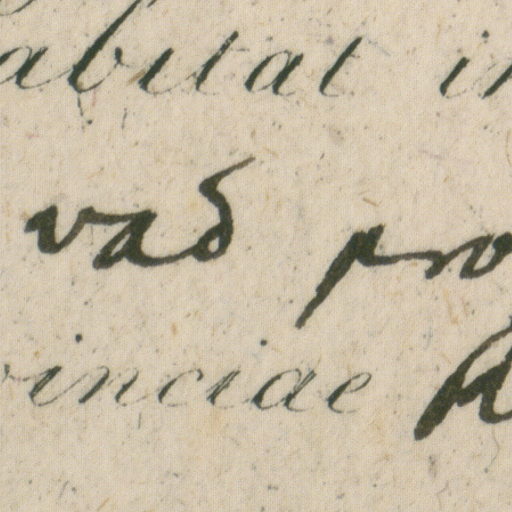 abitat in
vad pro
vinciae